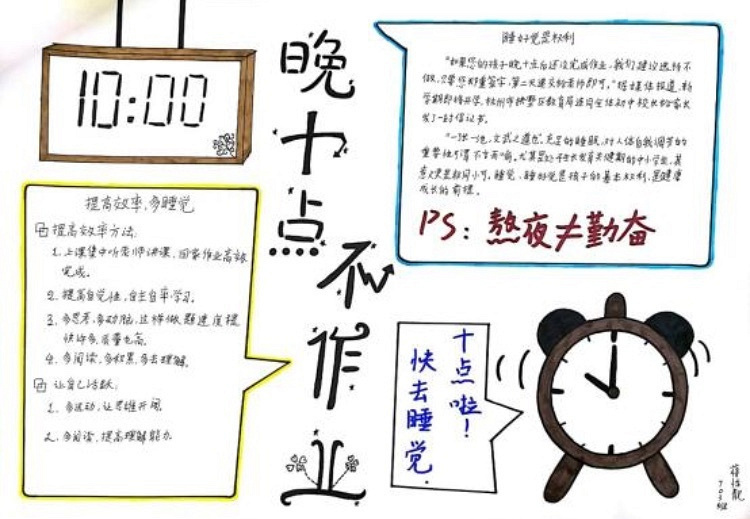 10:00
晚十点不作业
睡好觉是权利
"如果您的孩子晚上十点后还没完成作业,我们建议选择不
做,只要您郑重签字,第二天递交给老师即可。"据媒体报道,新
学期即将开学,杭州市拱墅区教育局近日全体初中校长给家长
发了一封信证书。
"一张一弛,文武之道也。充足的睡眠,对人体自我调节的
重要性不言而喻。尤其是处于生长发育关键期的中小学生,其
意义更是非同小可。睡觉、睡好觉是孩子的基本权利,是健康
成长的前提。
PS:熬夜≠勤奋
提高效率,多睡觉
提高效率方法:
1.上课集中听老师讲课,回家作业高效
完成。
2.提高自觉性,自主自率学习。
3.多思考,多动脑,这样做题速度提
快许多,质量也高。
4.多阅读,多积累,多去理解。
让自己活跃:
1.多运动,让思维开阔
2.多阅读,提高理解能力
十点啦!
快去睡觉.
703班